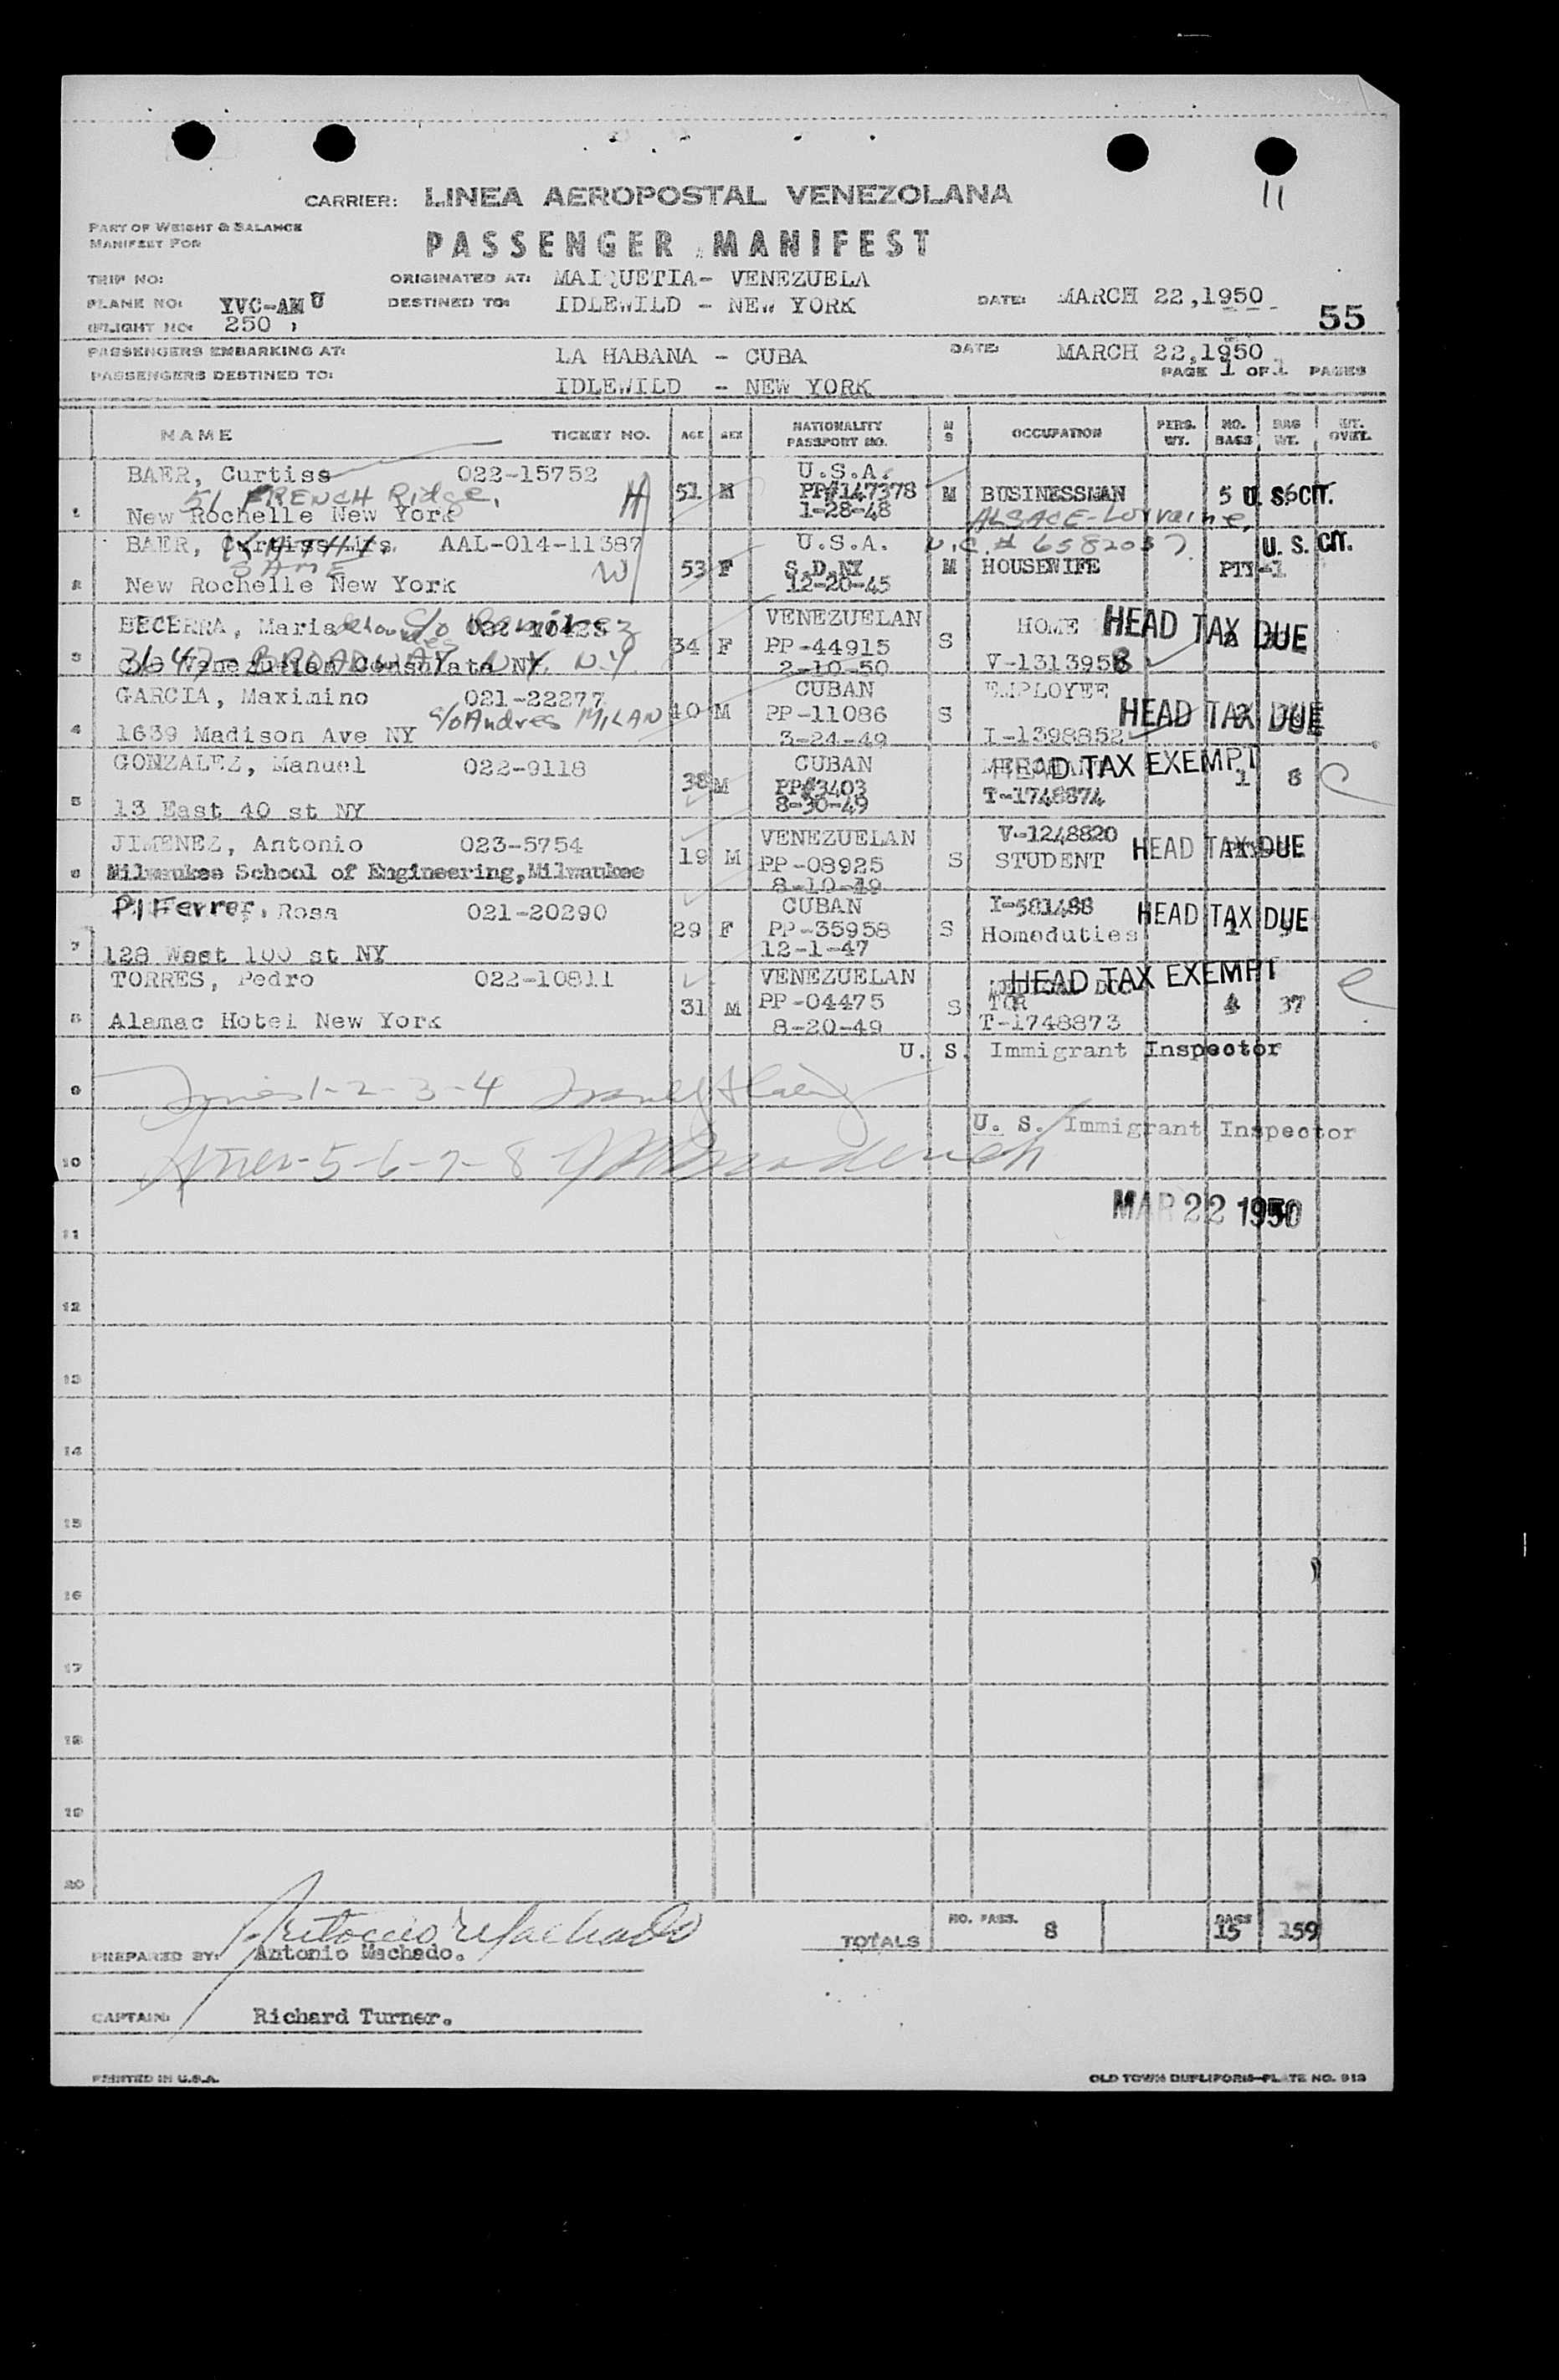 11
CARRIER: LINEA AEROPOSTAL VENEZOLANA
PART OF WEIGHT & BALANCE
MANIFEST FOR
PASSENGER MANIFEST
TRIP NO:
ORIGINATED AT: MAIQUETIA- VENEZUELA
PLANE NO: YVC-AMU
DESTINED TO: IDLEWILD - NEW YORK
DATE: MARCH 22,1950
FLIGHT NO: 250
55
PASSENGERS EMBARKING AT: LA HABANA - CUBA
DATE: MARCH 22,1950
PASSENGERS DESTINED TO: IDLEWILD - NEW YORK
PAGE 1 OF 1 PAGES
NAME TICKET NO. AGE SEX NATIONALITY PASSPORT NO. M S OCCUPATION PERS. WT. NO. BAGS BAG WT. WT. OVER.
BAER, Curtiss 022-15752 U.S.A.
56 FRENCH Ridge, H 51 M PP#147378 M BUSINESSMAN 5 U. S. CIT.
1 New Rochelle New York 1-28-48 ALSACE-Lorraine,
BAER, Curtiss Mrs. AAL-014-11387 U.S.A. N.C.# 6582037 U. S. CIT.
SAME W 53 F S.D.NY M HOUSEWIFE PTY-1
2 New Rochelle New York 12-20-45
BECERRA, Maria c/o VENEZUELAN HOME HEAD TAX DUE
3647- BROADWAY N.Y. N.Y. 34 F PP-44915 S
3 C/o Venezuelan Consulate NY 2-10-50 V-1313958
GARCIA, Maximino 021-22277 CUBAN EMPLOYEE
c/o Andres MILAN 40 M PP-11086 S HEAD TAX DUE
4 1639 Madison Ave NY 3-24-49 I-1398852
GONZALEZ, Manuel 022-9118 CUBAN HEAD TAX EXEMPT
38 M PP#3403 1 8 C
5 13 East 40 st NY 8-30-49 T-1748874
JIMENEZ, Antonio 023-5754 VENEZUELAN V-1248820
19 M PP-08925 S STUDENT HEAD TAX DUE
6 Milwaukee School of Engineering,Milwaukee 8-10-49
PiFerrer, Rosa 021-20290 CUBAN I-581488 HEAD TAX DUE
29 F PP-35958 S Homeduties 1
7 128 West 100 st NY 12-1-47
TORRES, Pedro 022-10811 VENEZUELAN HEAD TAX EXEMPT
31 M PP-04475 S TOR 4 37
8 Alamac Hotel New York 8-20-49 T-1748873
U. S. Immigrant Inspector
9 1-2-3-4
U. S. Immigrant Inspector
10 5-6-7-8
MAR 22 1950
11
12
13
14
15
16
17
18
19
20
Antonio Machado
PREPARED BY: Antonio Machado.
TOTALS NO. PASS. 8 BAGS 15 159
CAPTAIN: Richard Turner.
PRINTED IN U.S.A.
OLD TOWN DUPLIFORM-PLATE NO. 913